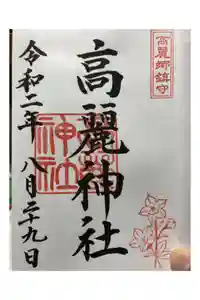 高麗郷鎮守
高麗神社
令和二年 八月二十九日